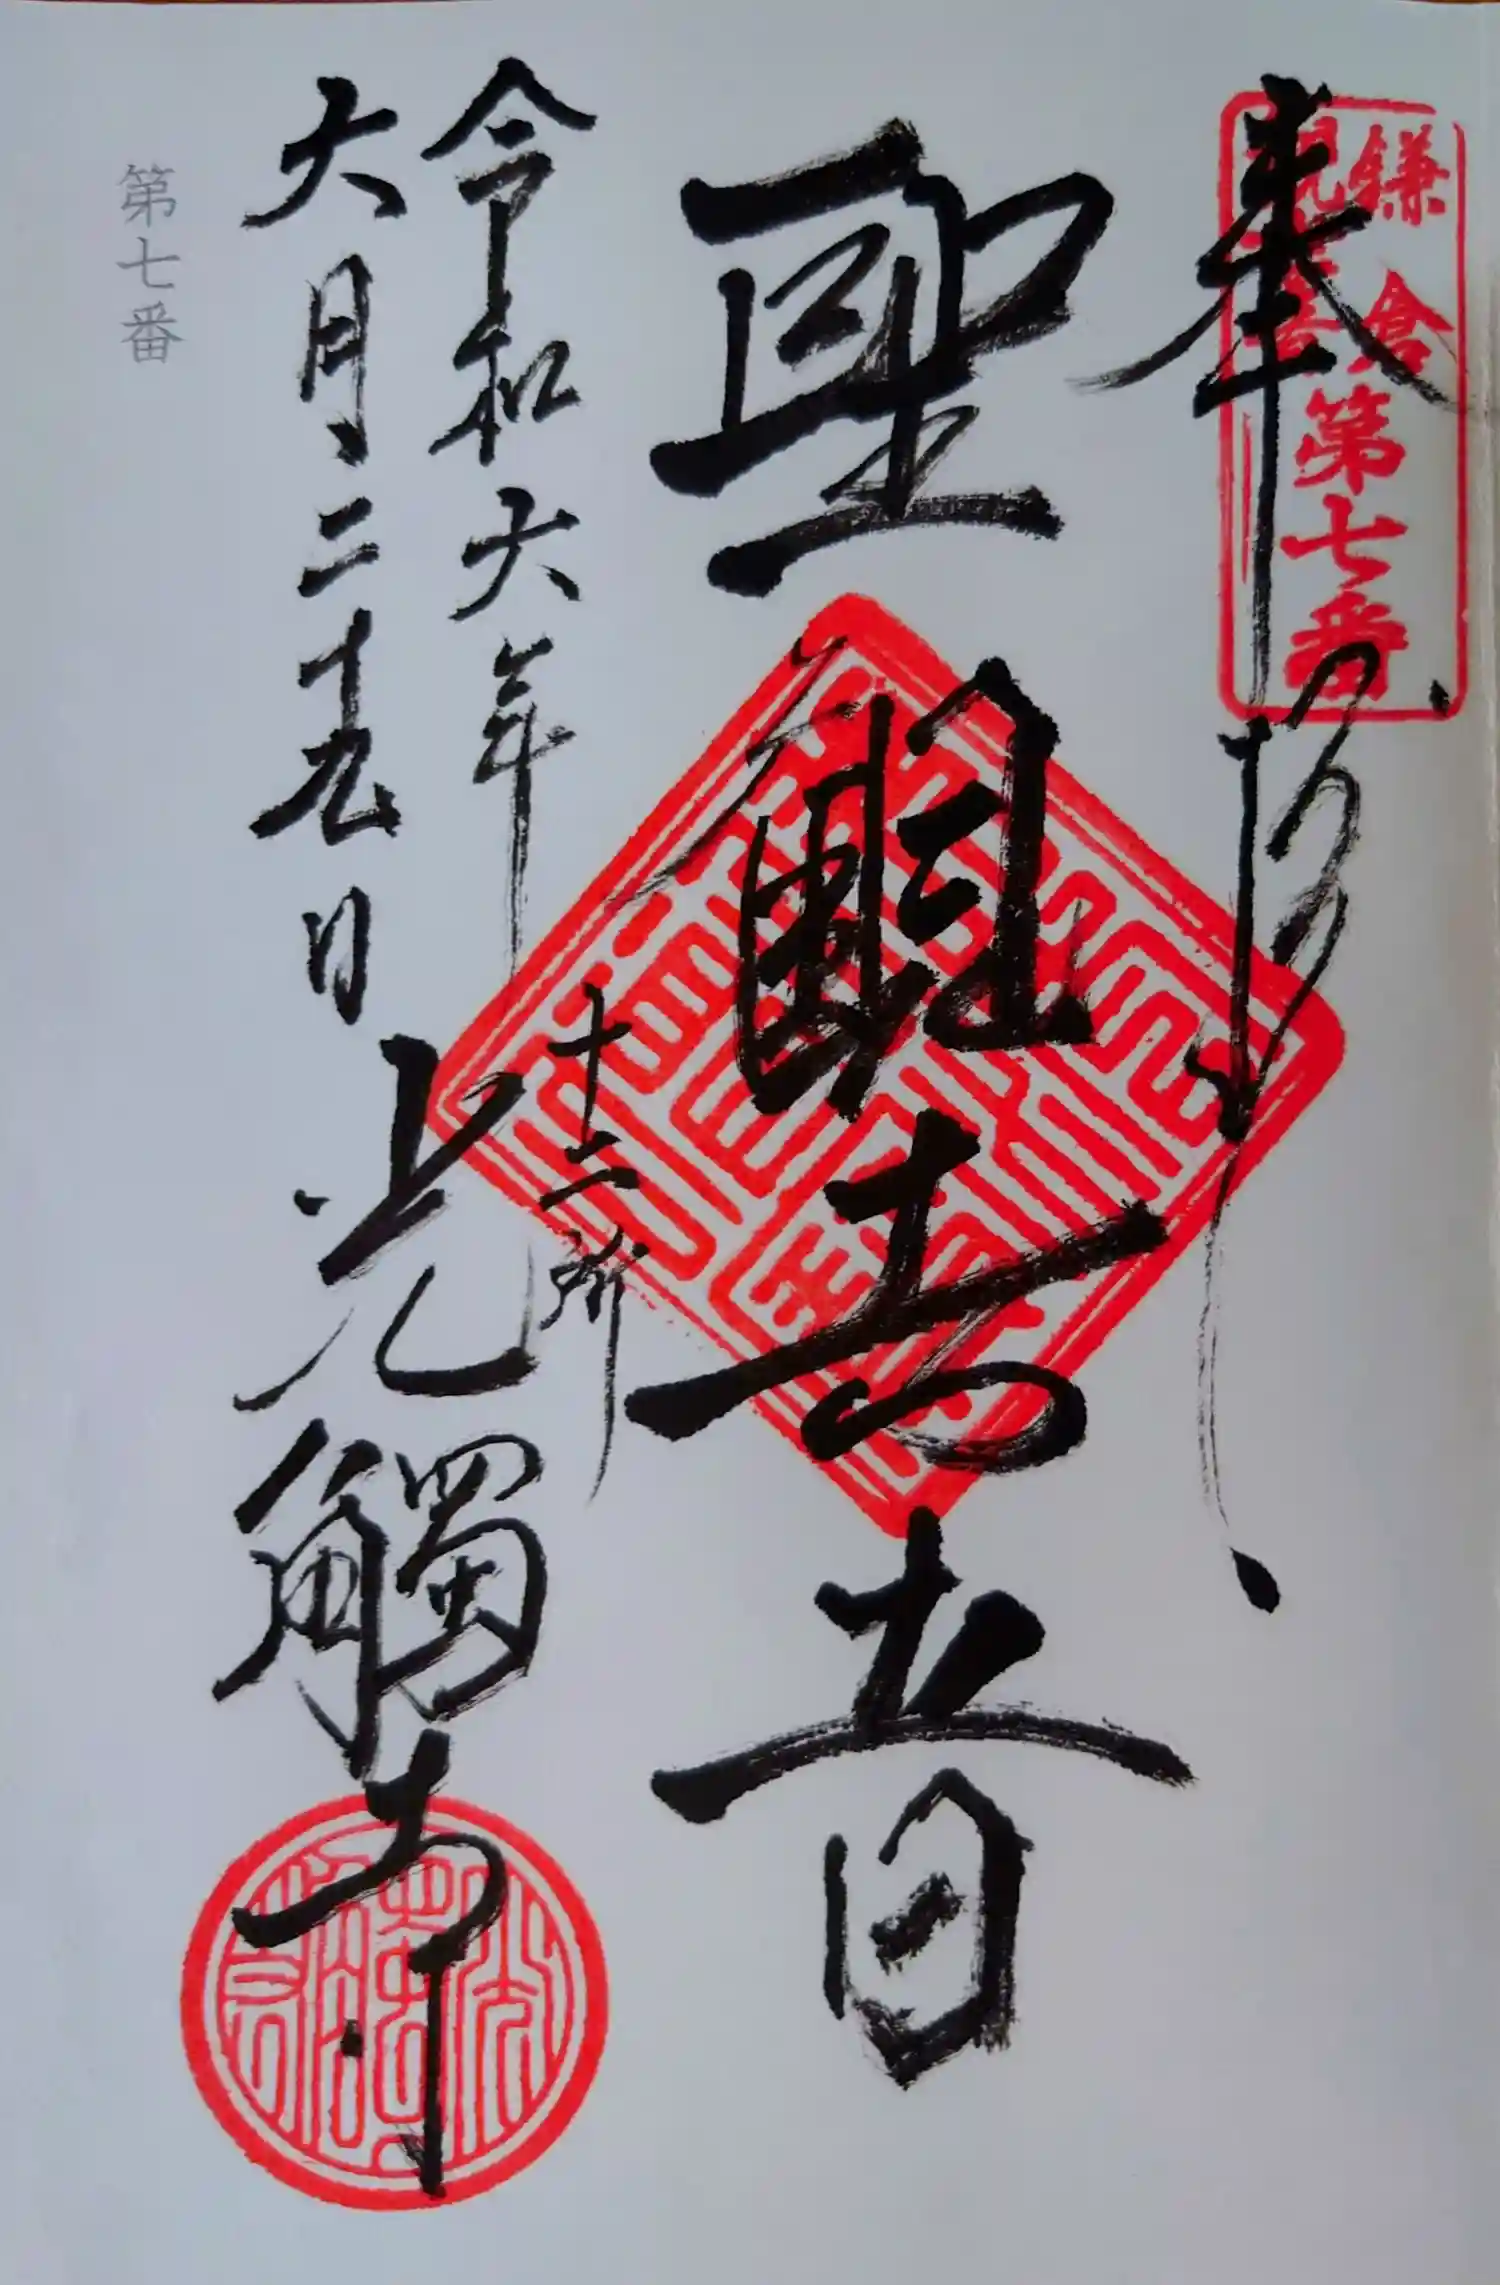 鎌倉
観音
第七番
奉拝
聖観世音
令和六年
六月二十九日
十二所
光觸寺
第七番